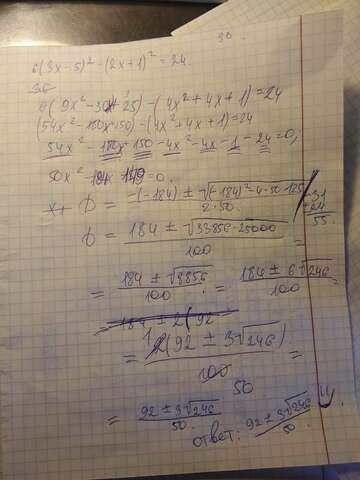 30.
6(3x-5)²-(2x+1)²=24
6(9x²-30x+25)-(4x²+4x+1)=24
(54x²-180x+150)-(4x²+4x+1)=24
54x²-180x+150-4x²-4x-1-24=0;
50x²-184x+125=0
D = -(-184)±√(-184)²-4·50·125 / 2·50
= 184±√33856-25000 / 100 =
= 184±√8856 / 100 = 184±6√246 / 100 =
= 2(92±3√246) / 100 =
50
= 92±3√246 / 50
ответ: 92±3√246 / 50